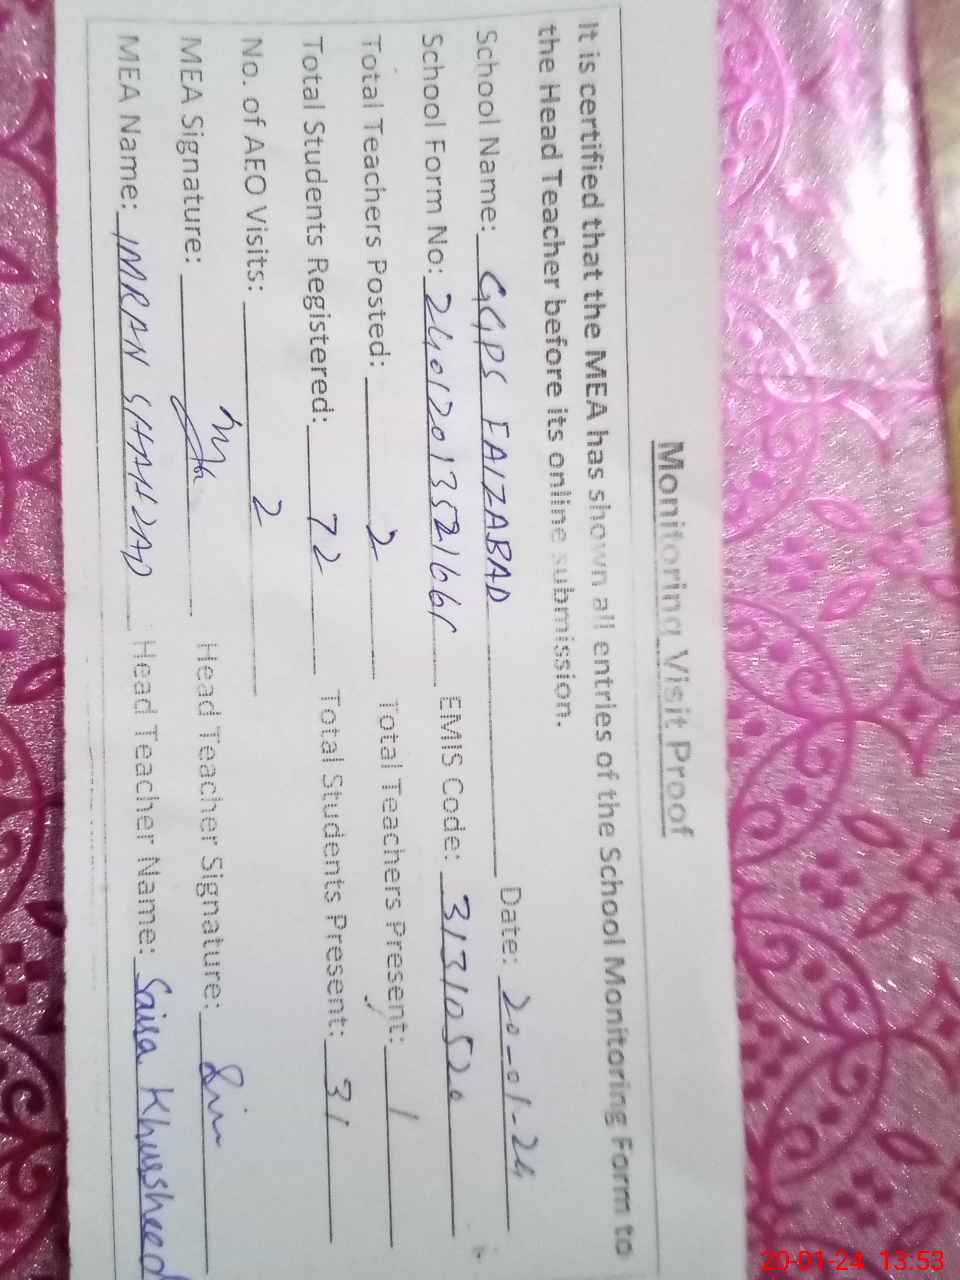 Monitoring Visit Proof
It is certified that the MEA has shown all entries of the School Monitoring Form to
the Head Teacher before its online submission.
School Name: GGPS FAIZABAD Date: 20-01-24
School Form No: EMIS Code: 31310520
Total Teachers Posted: 2 Total Teachers Present: 1
Total Students Registered: 72 Total Students Present: 31
No. of AEO Visits: 2
MEA Signature: Head Teacher Signature:
MEA Name: IMRAN SHAHZAD Head Teacher Name: Saira Khursheed
20-01-24 13:53